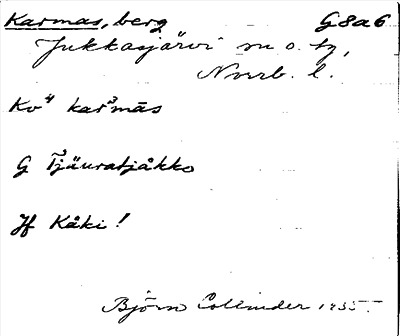 Karmas, berg G8a6
Jukkasjärvi sn o. tg,
Norrb. l.
Kv⁴ kar³mās
G Tjäuratjåkko
Jf Kåki!
Björn Collinder 1935